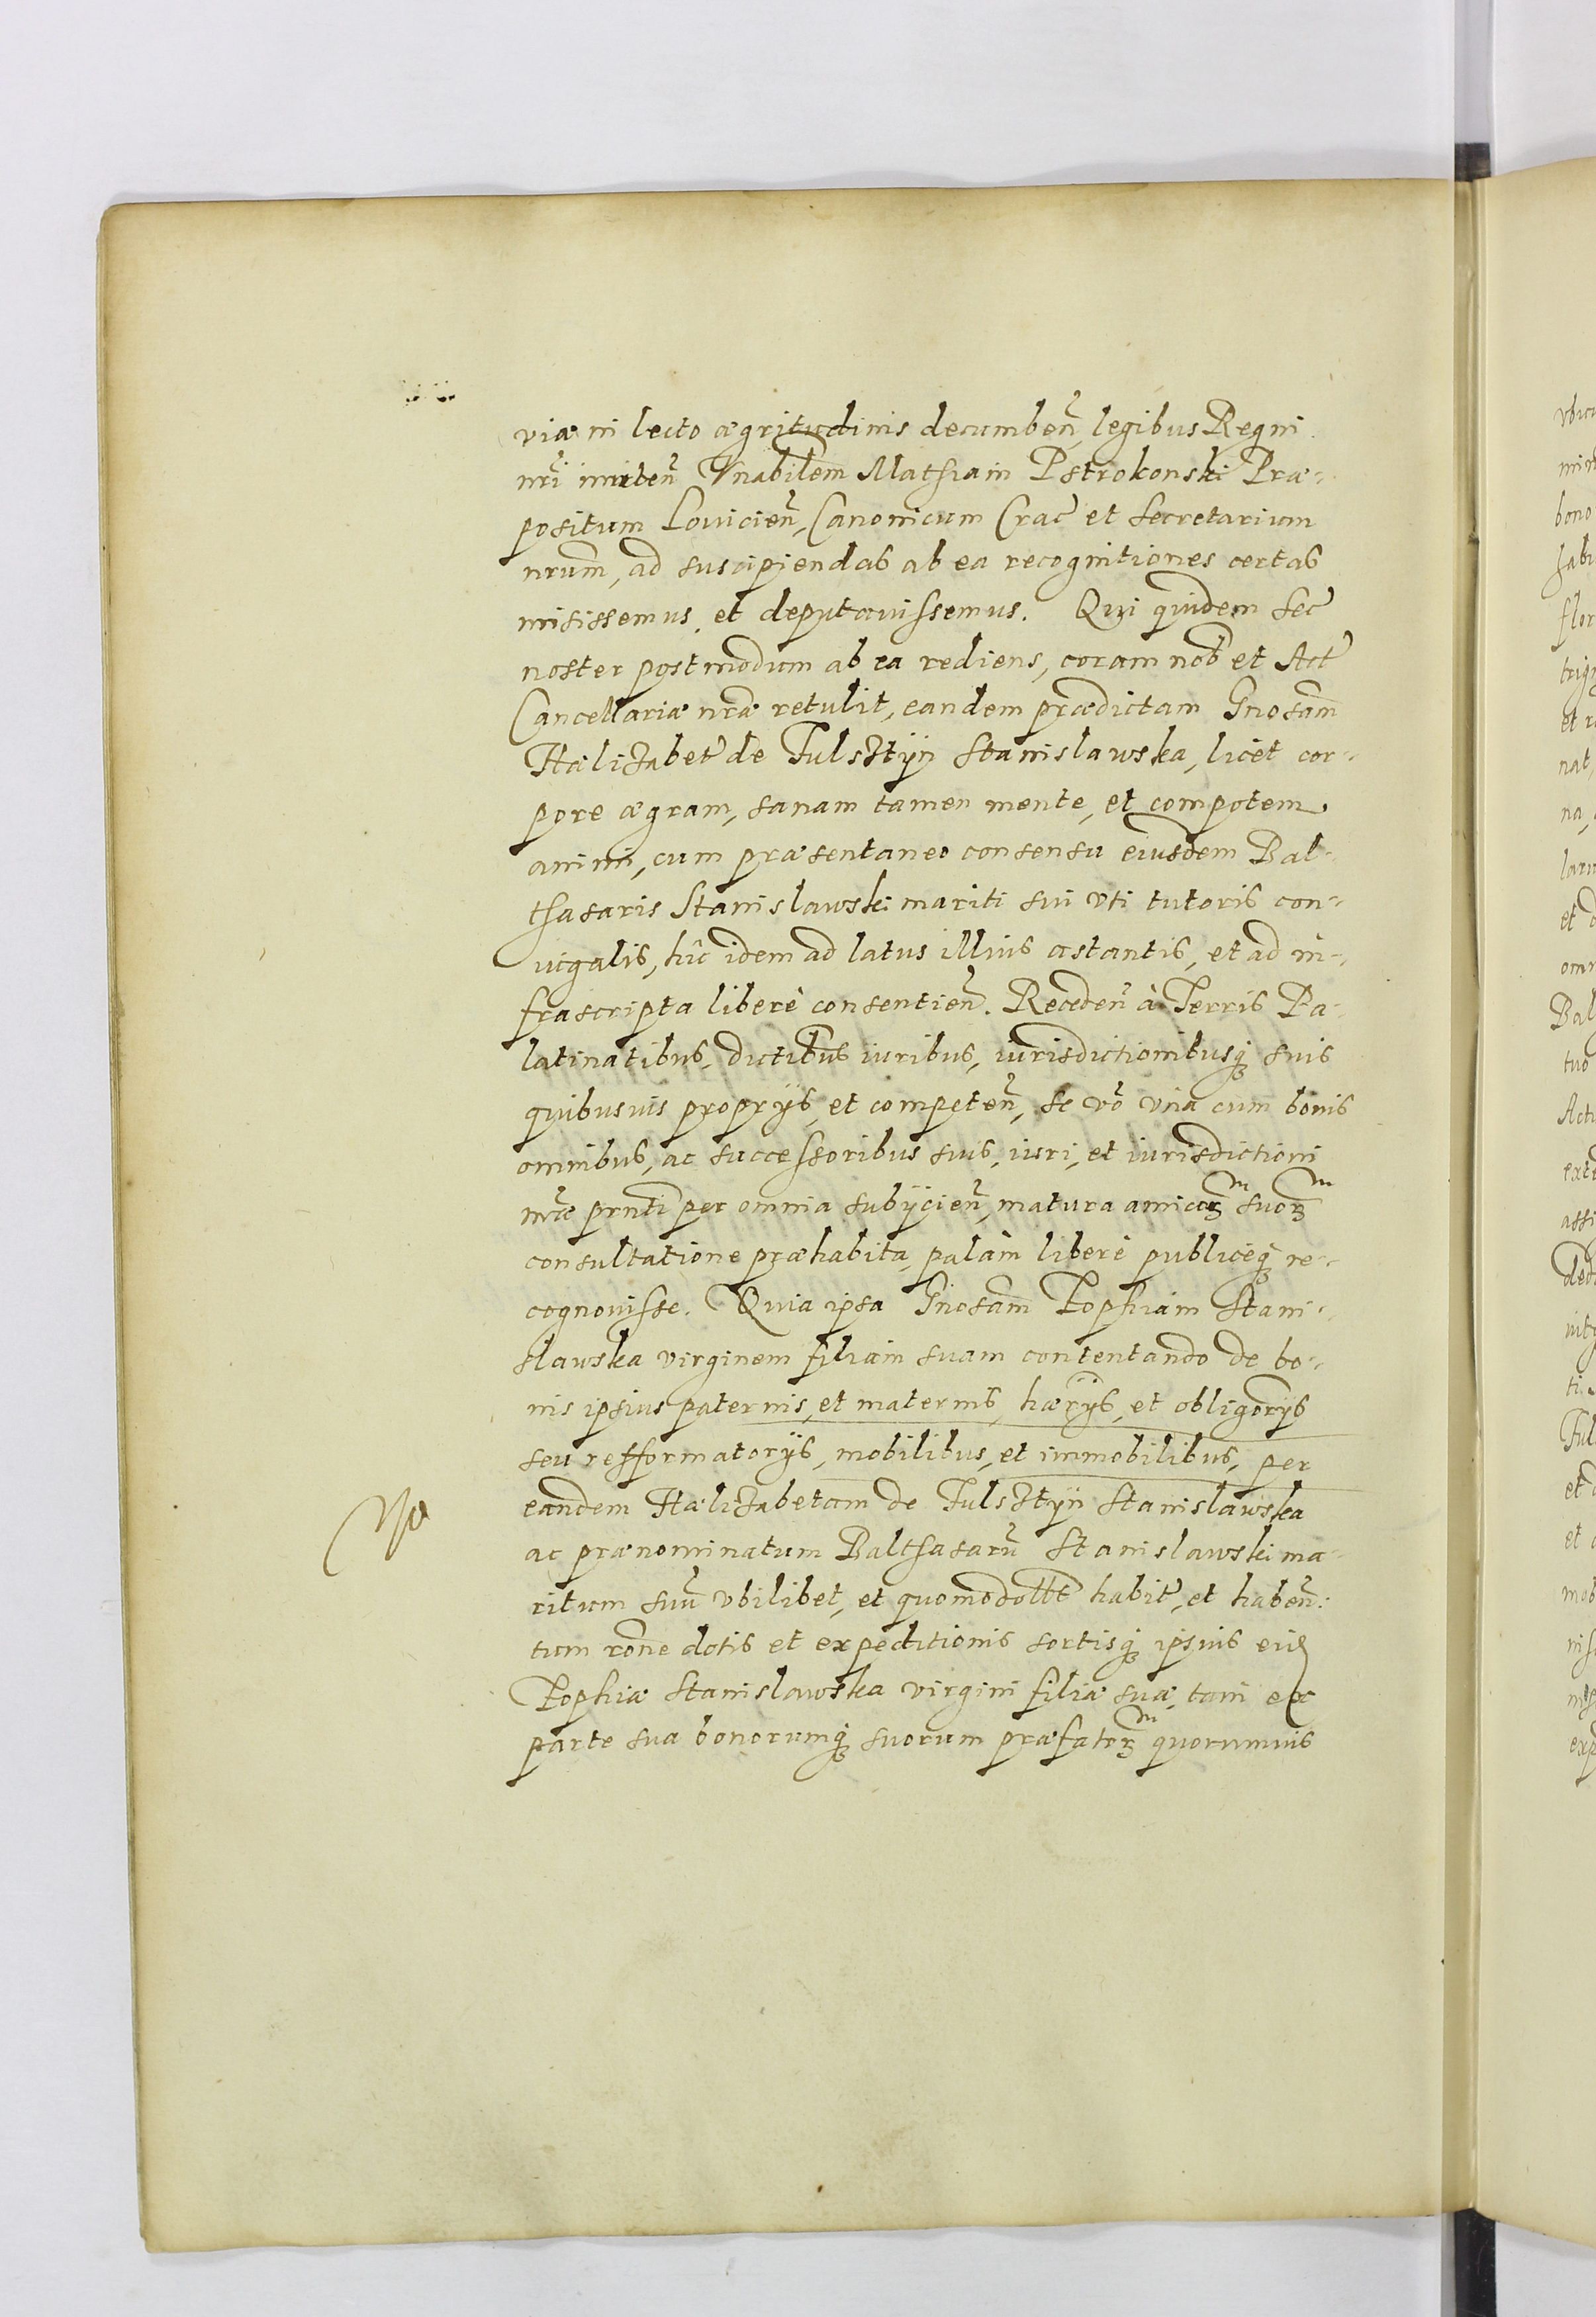 viæ in lecto ægritudinis decumben̄, legibus Regni
nr̄i inniten̄ Vnabilem Mathiam Pstrokonski Præ-
positum Louicien̄, Canonicum Crac̄ et Secretarium
nrum̄, ad suscipiendas ab ea recognitiones certas
misissemus, et deputauissemus. Qui quidem Sec̄
noster postmodum ab ea rediens, coram nob̄ et Act̄
Cancellariæ nr̄æ retulit, eandem prædictam Gnosam̄
Hælizabet̄ de Fulsztÿn Stanislawska, licet cor-
pore ægram, sanam tamen mente, et compotem
animi, cum præsentaneo consensu eiusdem Bal-
thasaris Stanislawski mariti sui vti tutoris con-
iugalis, hīc idem ad latus illius astantis, et ad in-
frascripta liberè consentien̄. Receden̄ à Terris Pa-
latinatibus, dictibus iuribus, iurisdictionibusq; suis
quibusuis proprÿs, et competen̄, se vō vna cum bonis
omnibus, ac successoribus suis, iuri, et iurisdictioni
nr̄æ prnti per omnia subÿcien̄, matura amicor̄ suor̄
consultatione præhabita, palàm liberè publiceq; re-
cognouisse. Quia ipsa Gnosam̄ Zophiam Stani-
slawska virginem filiam suam contentando de bo-
nis ipsius paternis, et maternis, hær̄ÿs, et obligōrÿs
seu refformatorÿs, mobilibus, et immobilibus, per
eandem Hælizabetam de Fulsztÿn Stanislawska
ac prænominatum Balthasarū Stanislawski ma-
ritum suū vbilibet, et quomodolt̄t habit̄, et haben̄:
tum rōne dotis et expeditionis sortisq; ipsius eid̄
Zophiæ Stanislawska virgini filiæ suæ, tam ex
parte sua bonorumq; suorum præfator̄ quorumuis